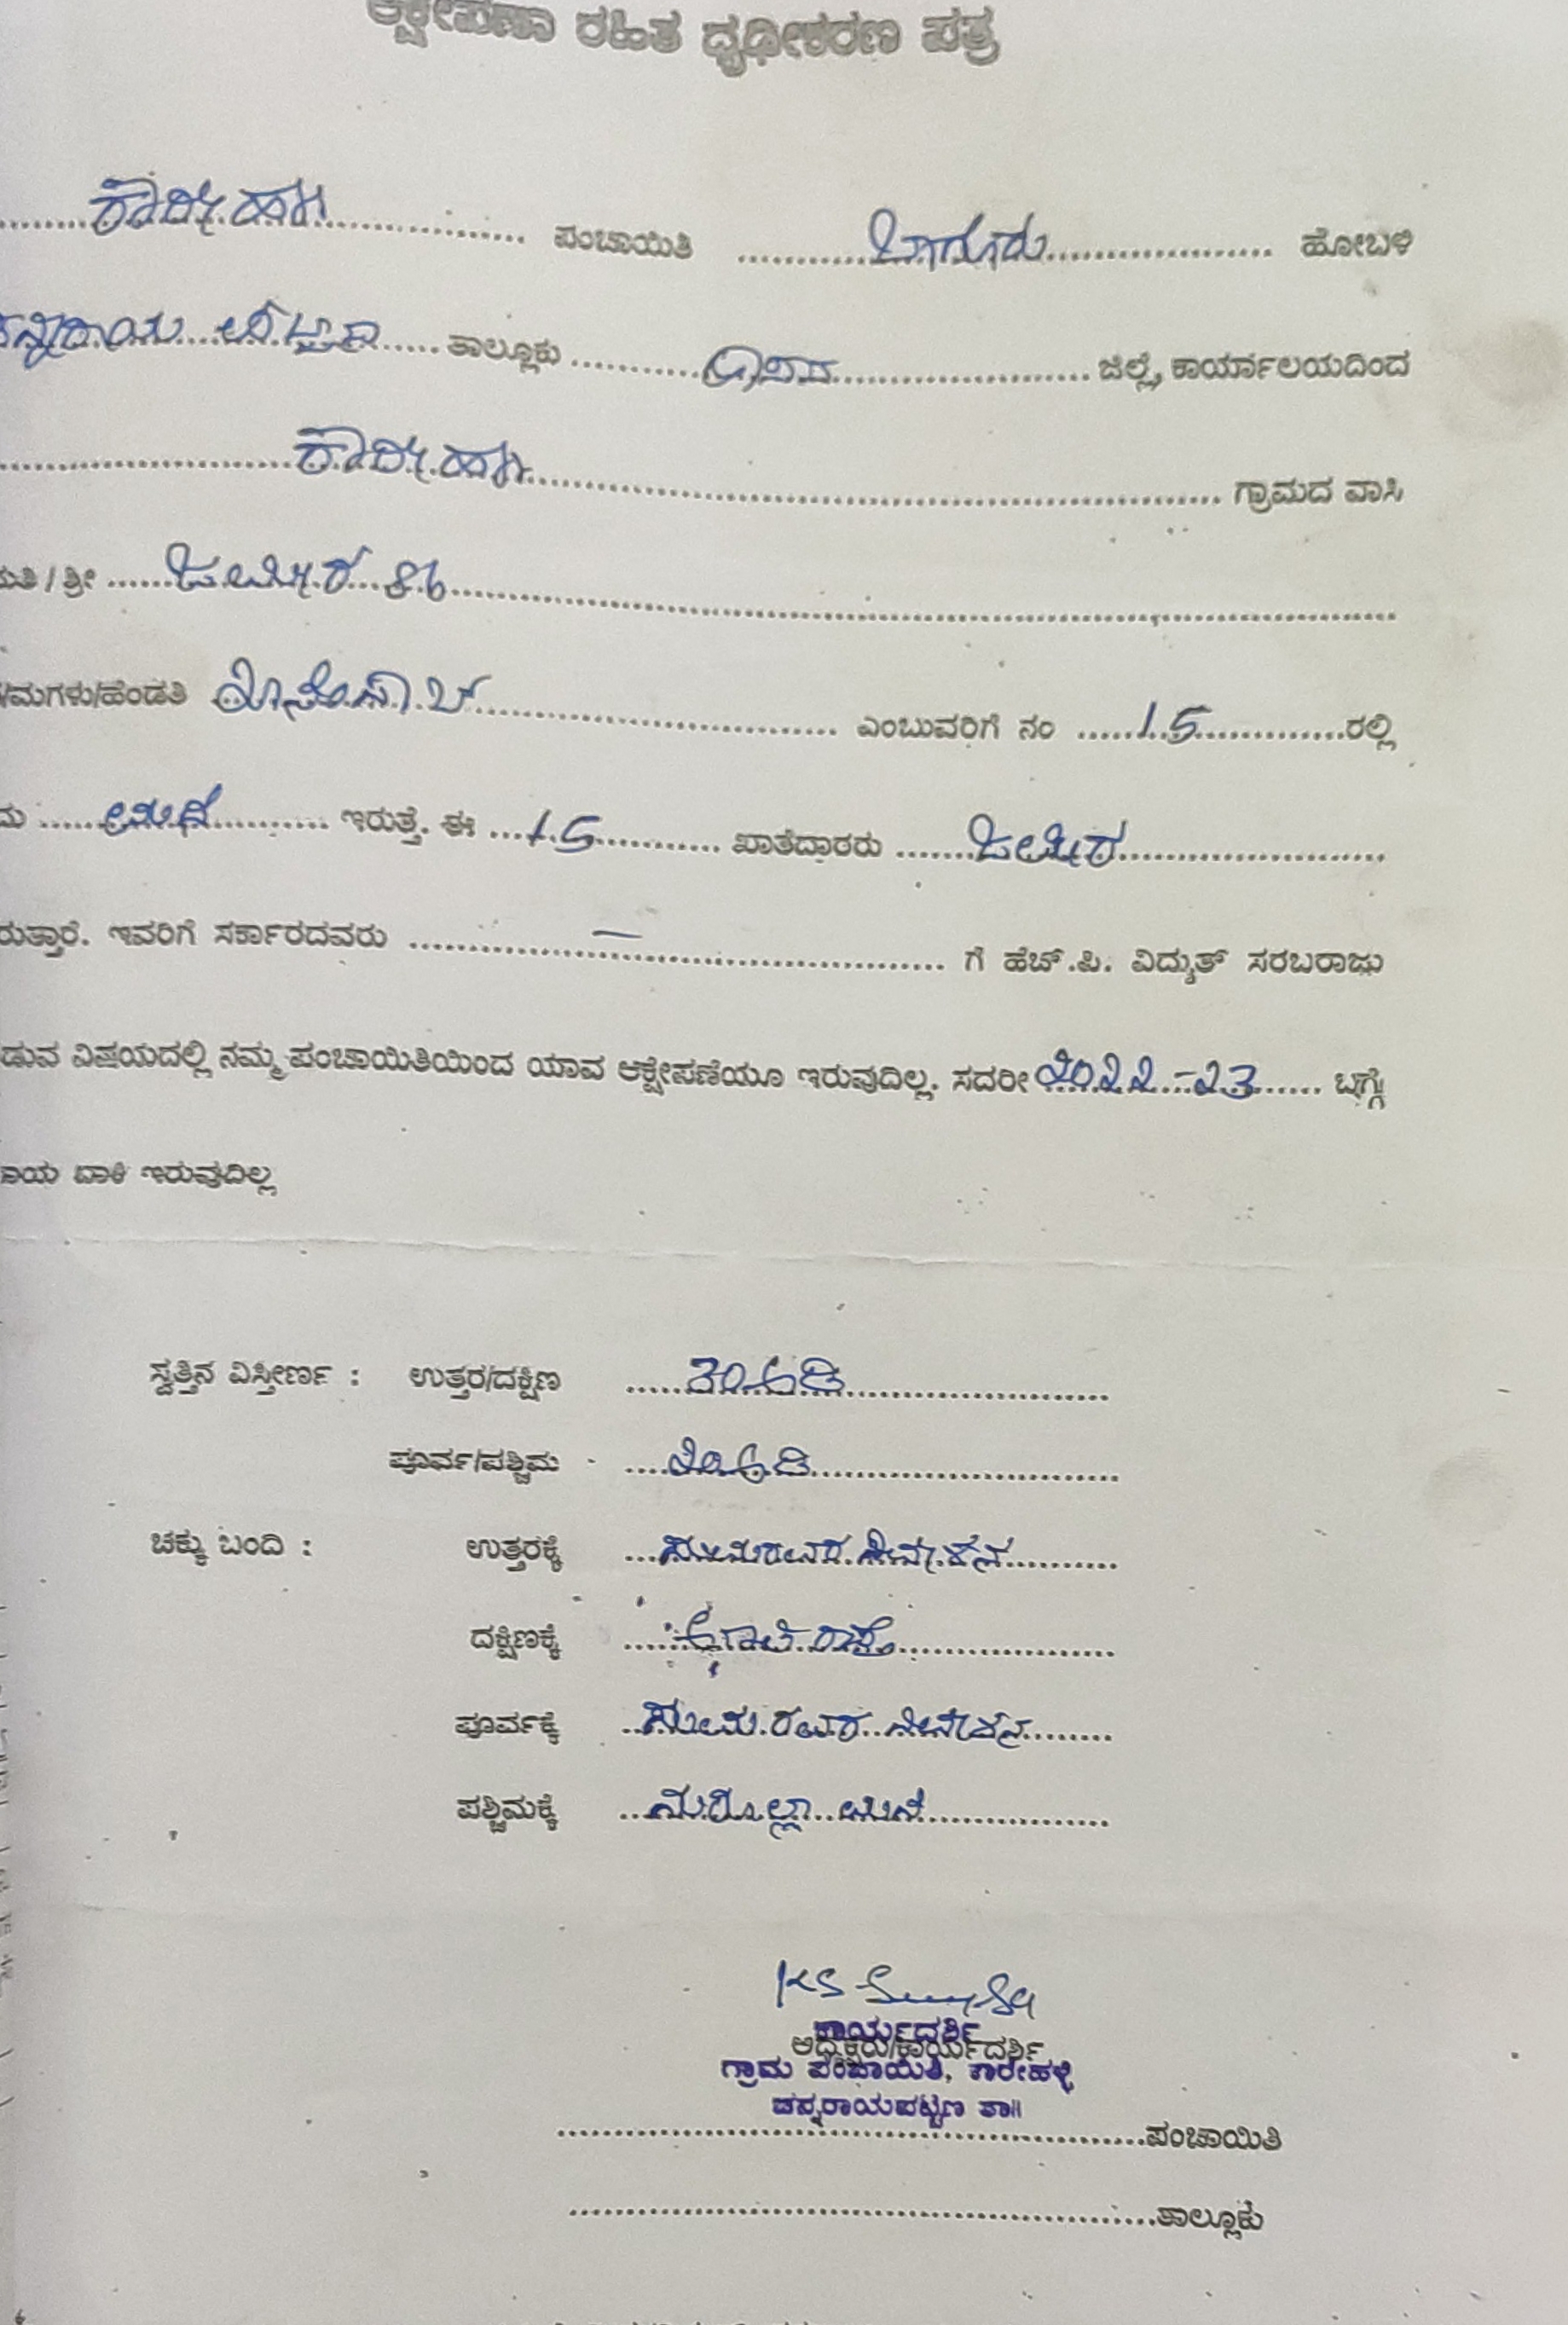 ಆಕ್ಷೇಪಣಾ ರಹಿತ ಧೃಢೀಕರಣ ಪತ್ರ
ಕಾರೇಹಳ್ಳಿ ಪಂಚಾಯಿತಿ ಬಾಗೂರು ಹೋಬಳಿ
ತಾಲ್ಲೂಕು ಹಾಸನ ಜಿಲ್ಲೆ, ಕಾರ್ಯಾಲಯದಿಂದ
ಕಾರೇಹಳ್ಳಿ ಗ್ರಾಮದ ವಾಸಿ
ಮತಿ / ಶ್ರೀ
/ಮಗಳು/ಹೆಂಡತಿ ಎಂಬುವರಿಗೆ ನಂ 15 ರಲ್ಲಿ
ಮನೆ ಇರುತ್ತೆ. ಈ 15 ಖಾತೆದಾರರು
ರುತ್ತಾರೆ. ಇವರಿಗೆ ಸರ್ಕಾರದವರು — ಗೆ ಹೆಚ್.ಪಿ. ವಿದ್ಯುತ್ ಸರಬರಾಜು
ಡುವ ವಿಷಯದಲ್ಲಿ ನಮ್ಮ ಪಂಚಾಯಿತಿಯಿಂದ ಯಾವ ಆಕ್ಷೇಪಣೆಯೂ ಇರುವುದಿಲ್ಲ. ಸದರೀ 2022-23 ಬಗ್ಗೆ
ದಾಯ ಬಾಕಿ ಇರುವುದಿಲ್ಲ
ಸ್ವತ್ತಿನ ವಿಸ್ತೀರ್ಣ : ಉತ್ತರ/ದಕ್ಷಿಣ 30 ಅಡಿ
ಪೂರ್ವ/ಪಶ್ಚಿಮ 20 ಅಡಿ
ಚಕ್ಕು ಬಂದಿ : ಉತ್ತರಕ್ಕೆ ನಿವೇಶನ
ದಕ್ಷಿಣಕ್ಕೆ ರಸ್ತೆ
ಪೂರ್ವಕ್ಕೆ ನಿವೇಶನ
ಪಶ್ಚಿಮಕ್ಕೆ ಮನೆ
ಕಾರ್ಯದರ್ಶಿ
ಅಧ್ಯಕ್ಷರು/ಕಾರ್ಯದರ್ಶಿ
ಗ್ರಾಮ ಪಂಚಾಯಿತಿ, ಕಾರೇಹಳ್ಳಿ
ಚನ್ನರಾಯಪಟ್ಟಣ ತಾ॥
ಪಂಚಾಯಿತಿ
ತಾಲ್ಲೂಕು